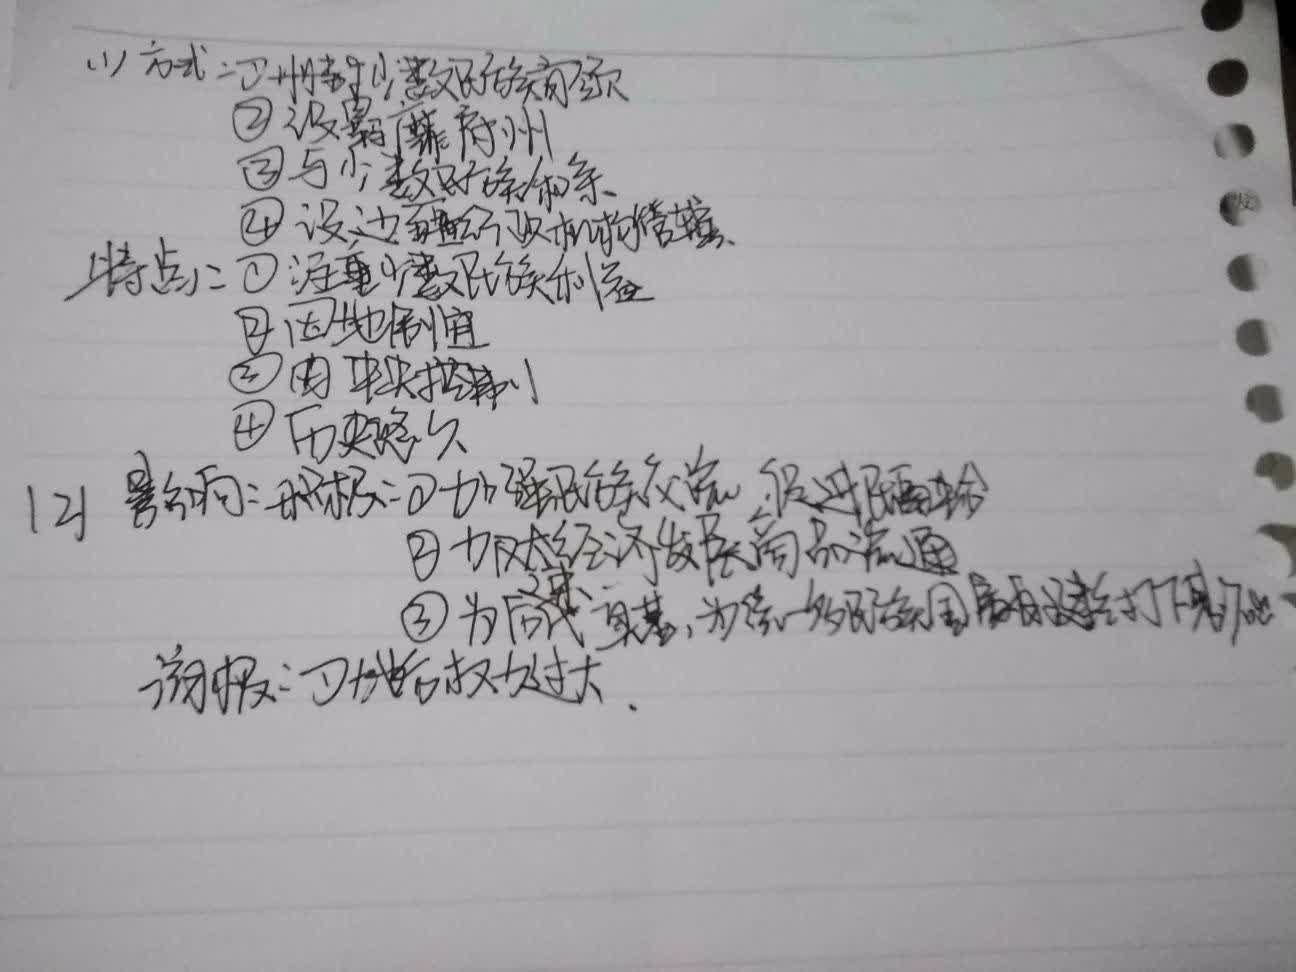 (1) 方式：① 少数民族首领
② 设羁縻府州
③ 与少数民族和亲
④ 设边疆行政机构管辖
特点：① 注重少数民族利益
② 因地制宜
③ 由中央控制
④ 历史悠久
(2) 影响：积极：① 加强民族交流，促进民族
② 加大经济发展商品流通
③ 为后代奠基，为统一多民族国家的建立打下
消极：① 权力过大.